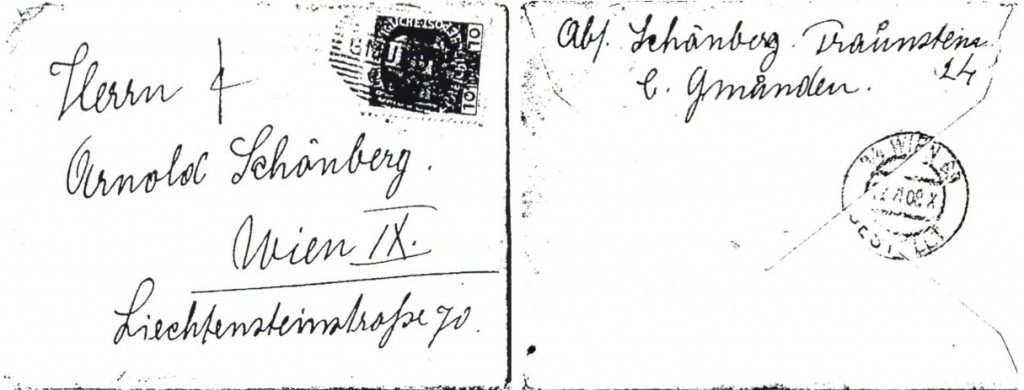 Herrn
Arnold Schönberg.
Wien IX.
Liechtensteinstraße 70.
10
10
Abs. Schönberg. Traunstein
24
b. Gmunden.
WIEN
BESTELLT